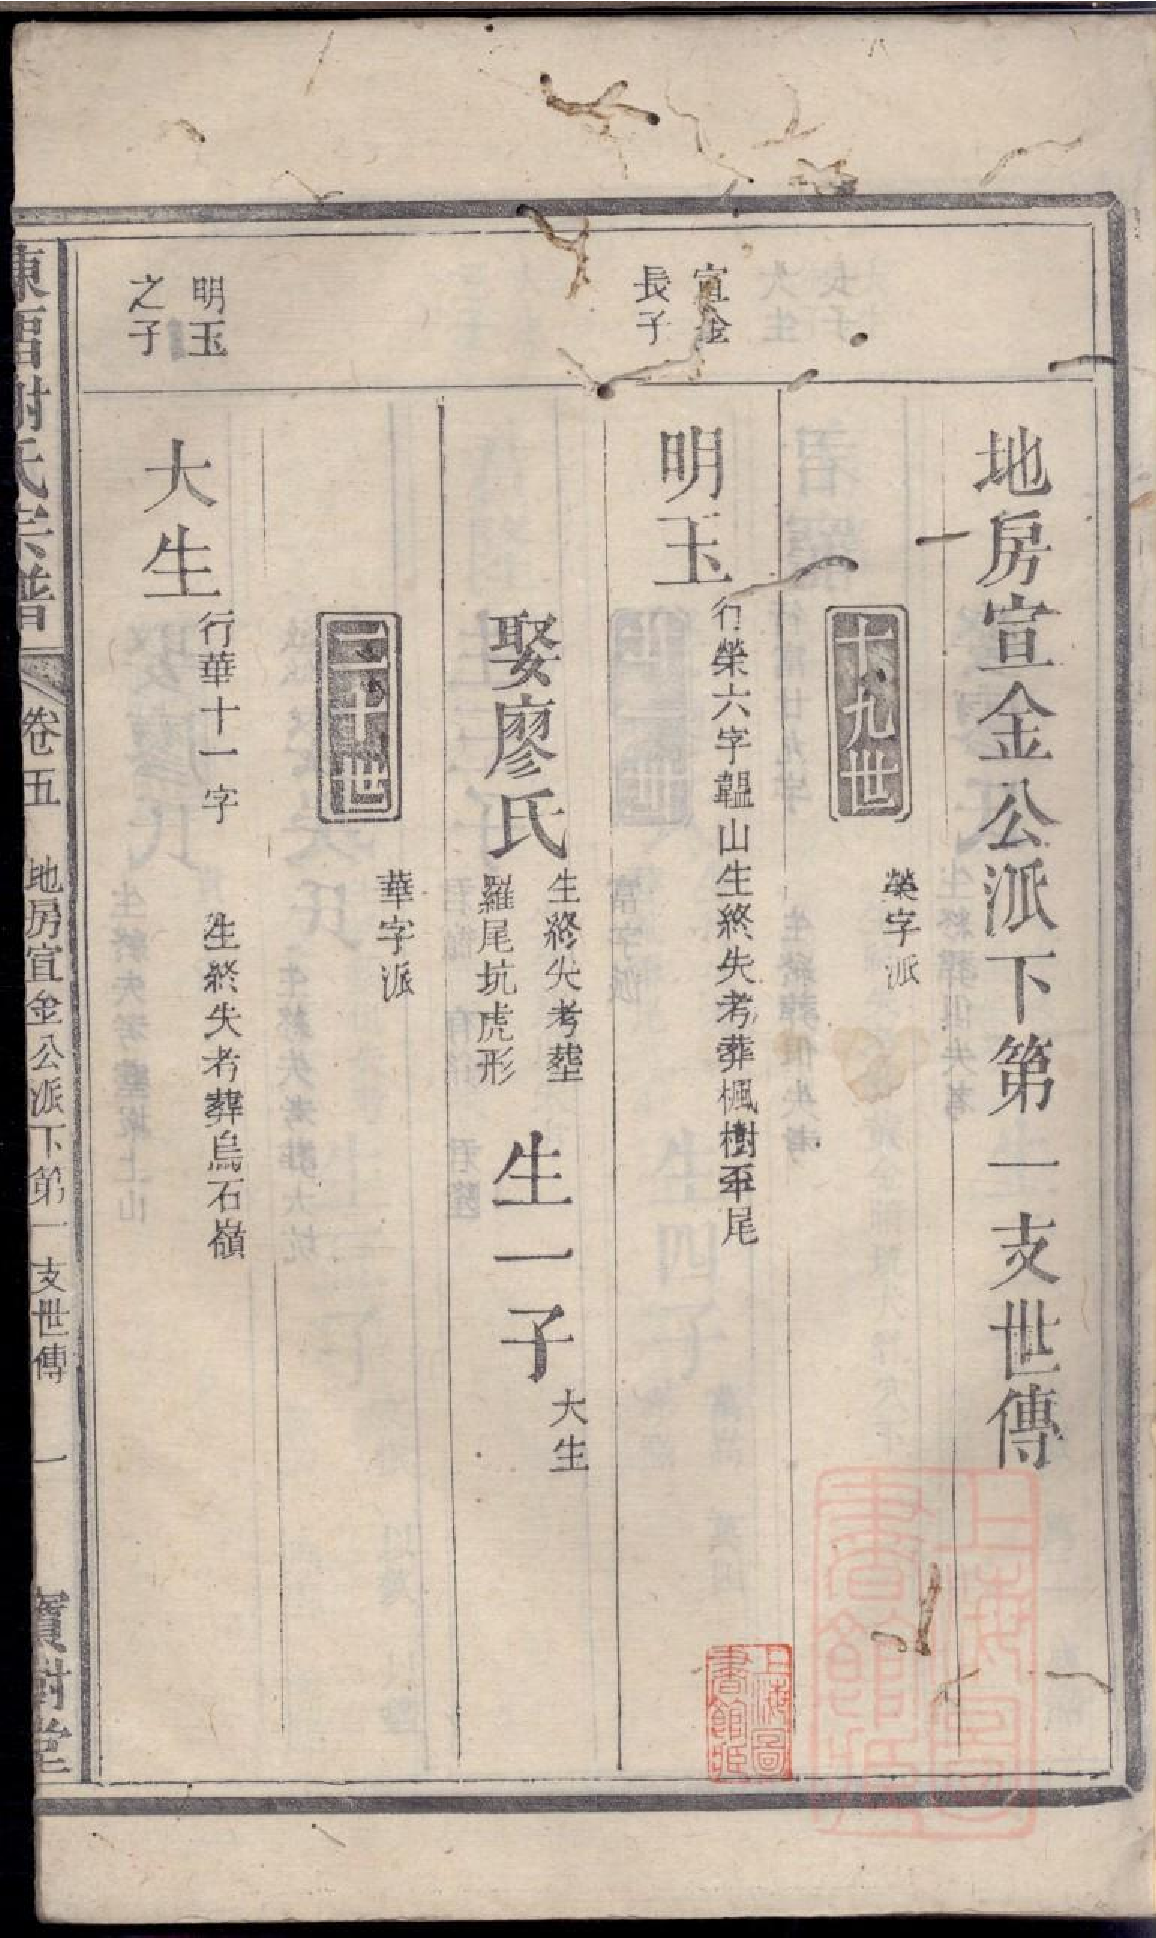 地房宣金公派下第一支世傳
十九世
榮字派
宣金
長子
明玉
行榮六字韞山生終失考葬楓樹坪尾
娶廖氏
生終失考塟
羅尾坑虎形
生一子
大生
二十世
華字派
明玉
之子
大生
行華十一字
生終失考葬烏石嶺
謝氏宗譜
卷五
地房宣金公派下第一支世傳
一
寶樹堂
上海圖書館藏